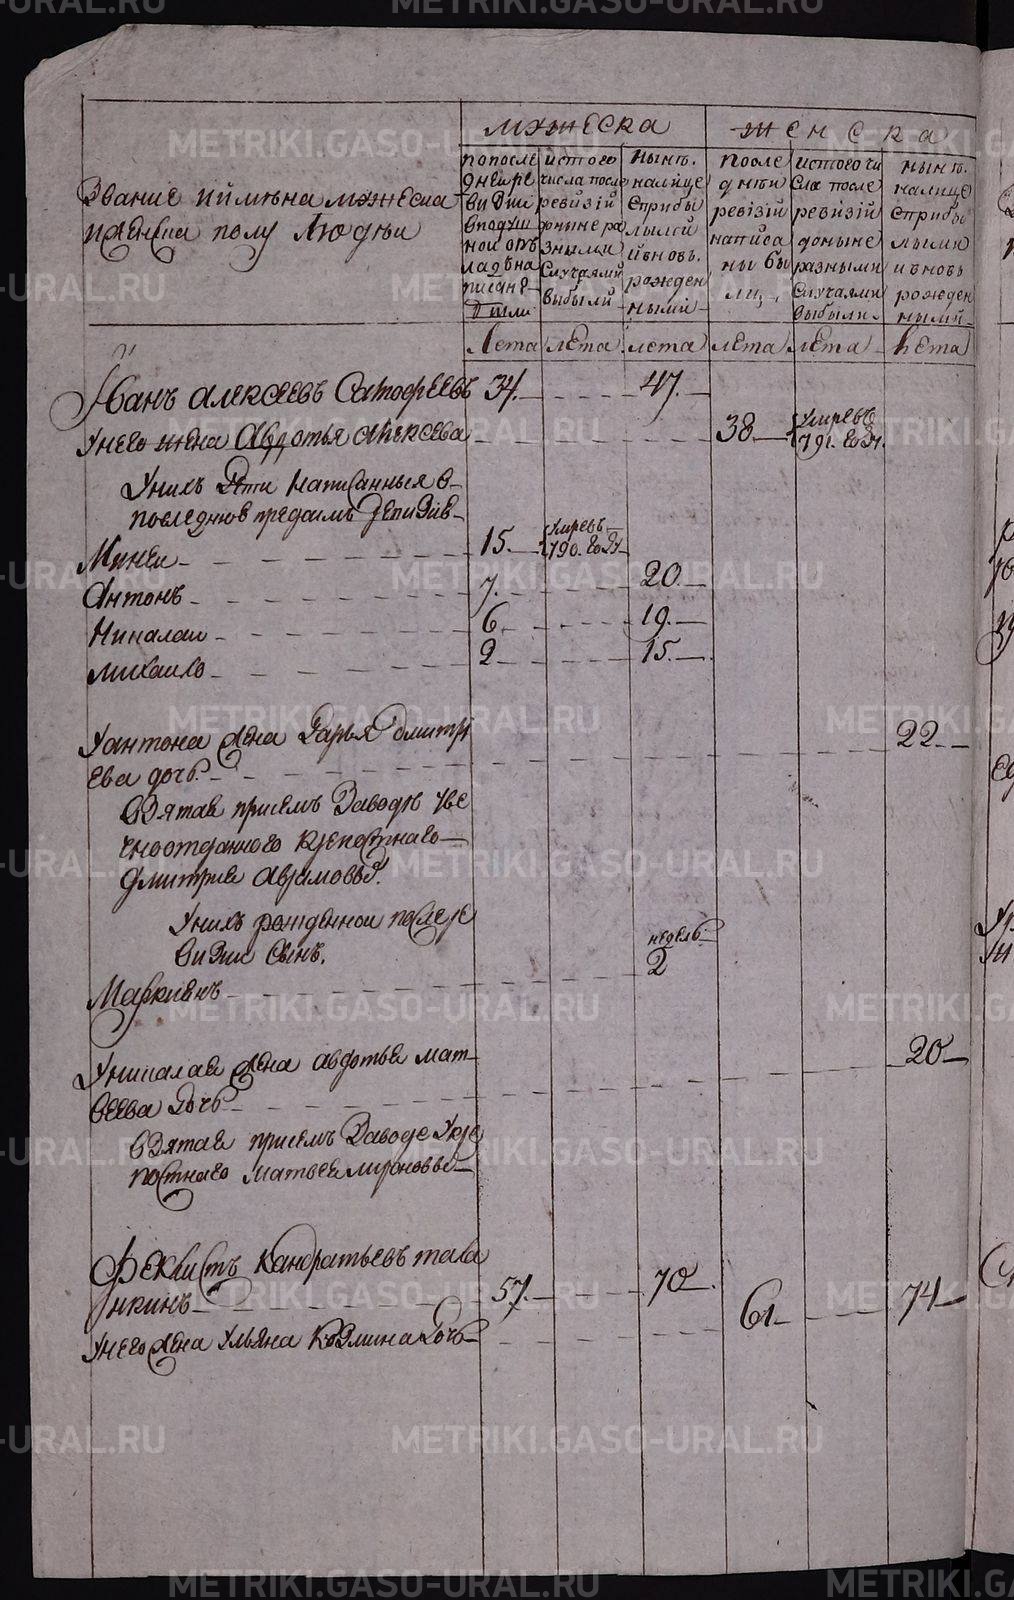 METRIKI.GASO-URAL.RU
МУЖЕСКА
ЖЕНСКА
Звание и имяна мужеска
и женска полу людѣи
по после
дней ре
визии
в подуш
ной окъ
ладъ на
писане
ис того
числа после
ревизій
до ныне ра
зными
случаями
выбыли
нынѣ
налице
с прибы
лыми
и вновь
рожден
ными
после
дней
ревизій
написа
ны бы
ли
ис того чи
сла после
ревизій
до ныне
разными
случаями
выбыли
нынѣ
налице
с прибы
лыми
и вновь
рожден
ными
Лета лета лета лета лета лета
Иванъ Алексеевъ 34. 47.
У него жена Авдотья Алексева 38 умре въ 791. году
У нихъ дети написанныя в
последнюю пред симъ ревизию
Минеи 15. умре въ 790. году
Антонъ 7. 20.
Николаи 6 19.
Михаило 2 15.
У Антона жена Дарья Дмитри
ева дочь 22.
взятая при семъ заводе у ве
чноотданного крепостнаго
Дмитрия Аврамова
У нихъ рожденной после ре
визии сынъ
недель
Маркиянъ 2
У Николая жена Авдотья Мат
веева дочь 20
взятая при семъ заводе у кре
постнаго Матвея Миронова
Феклистъ Кандратьевъ 57. 70
У него жена Ульяна Козмина дочь 61. 74